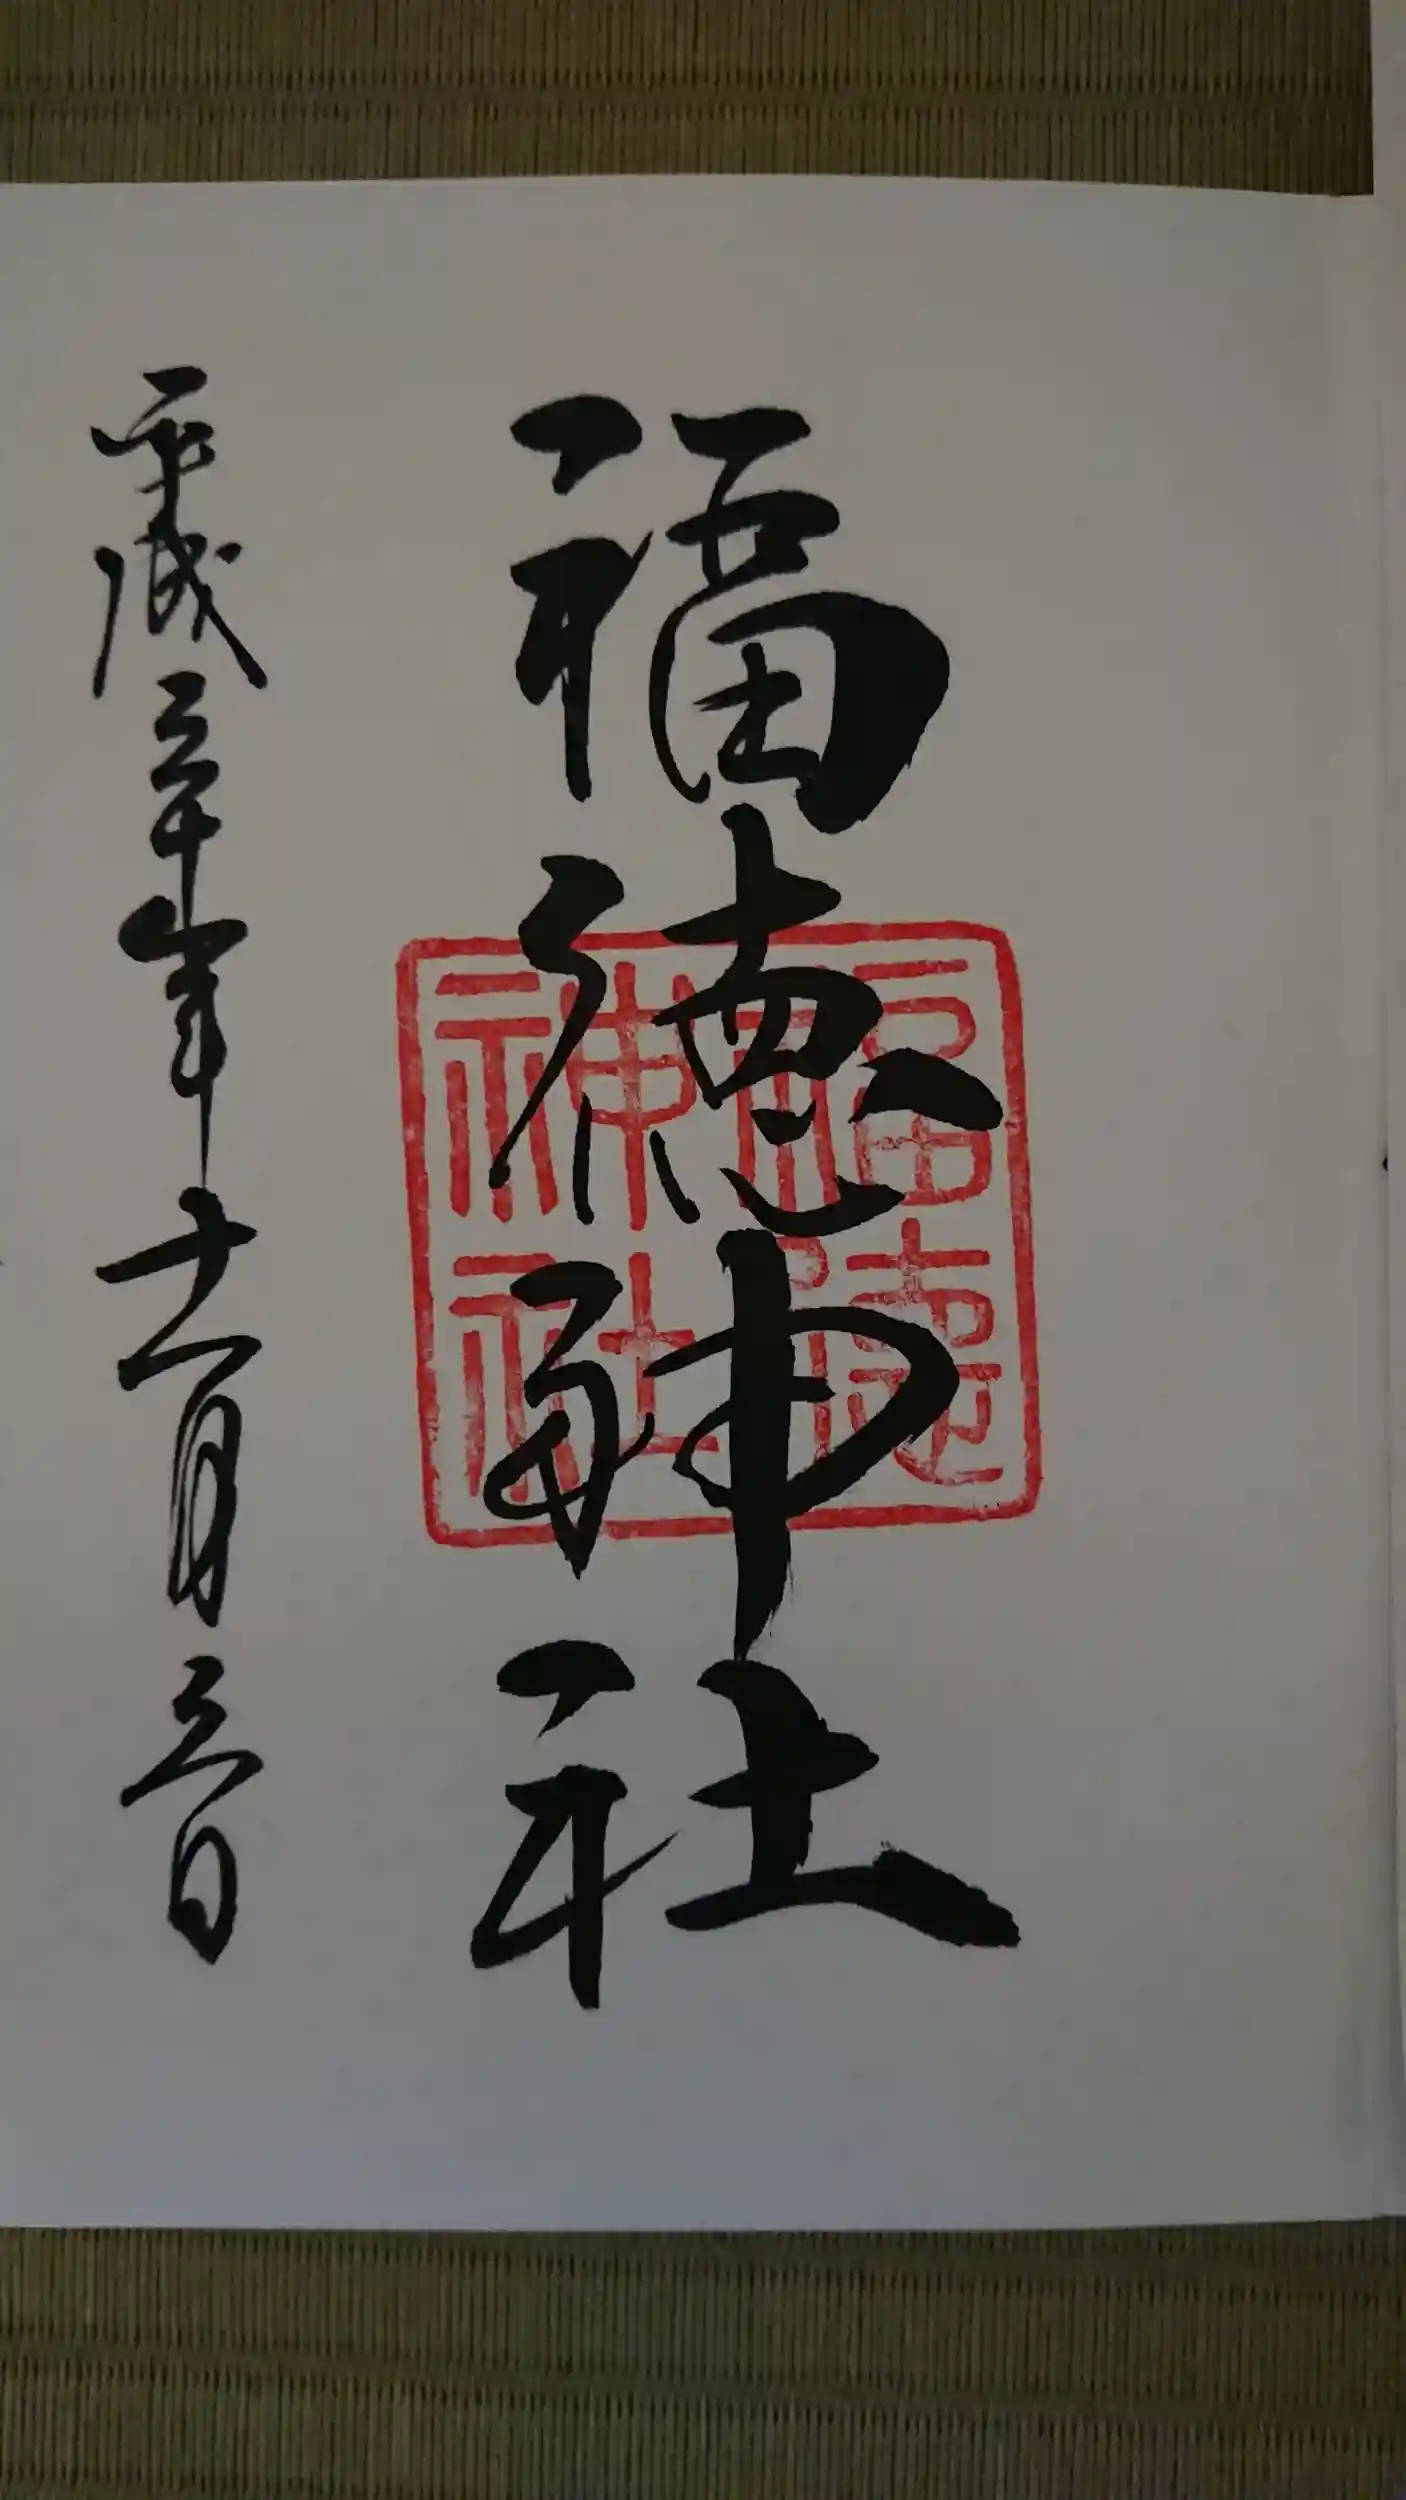 福徳神社
福徳神社
平成三十年十一月三日